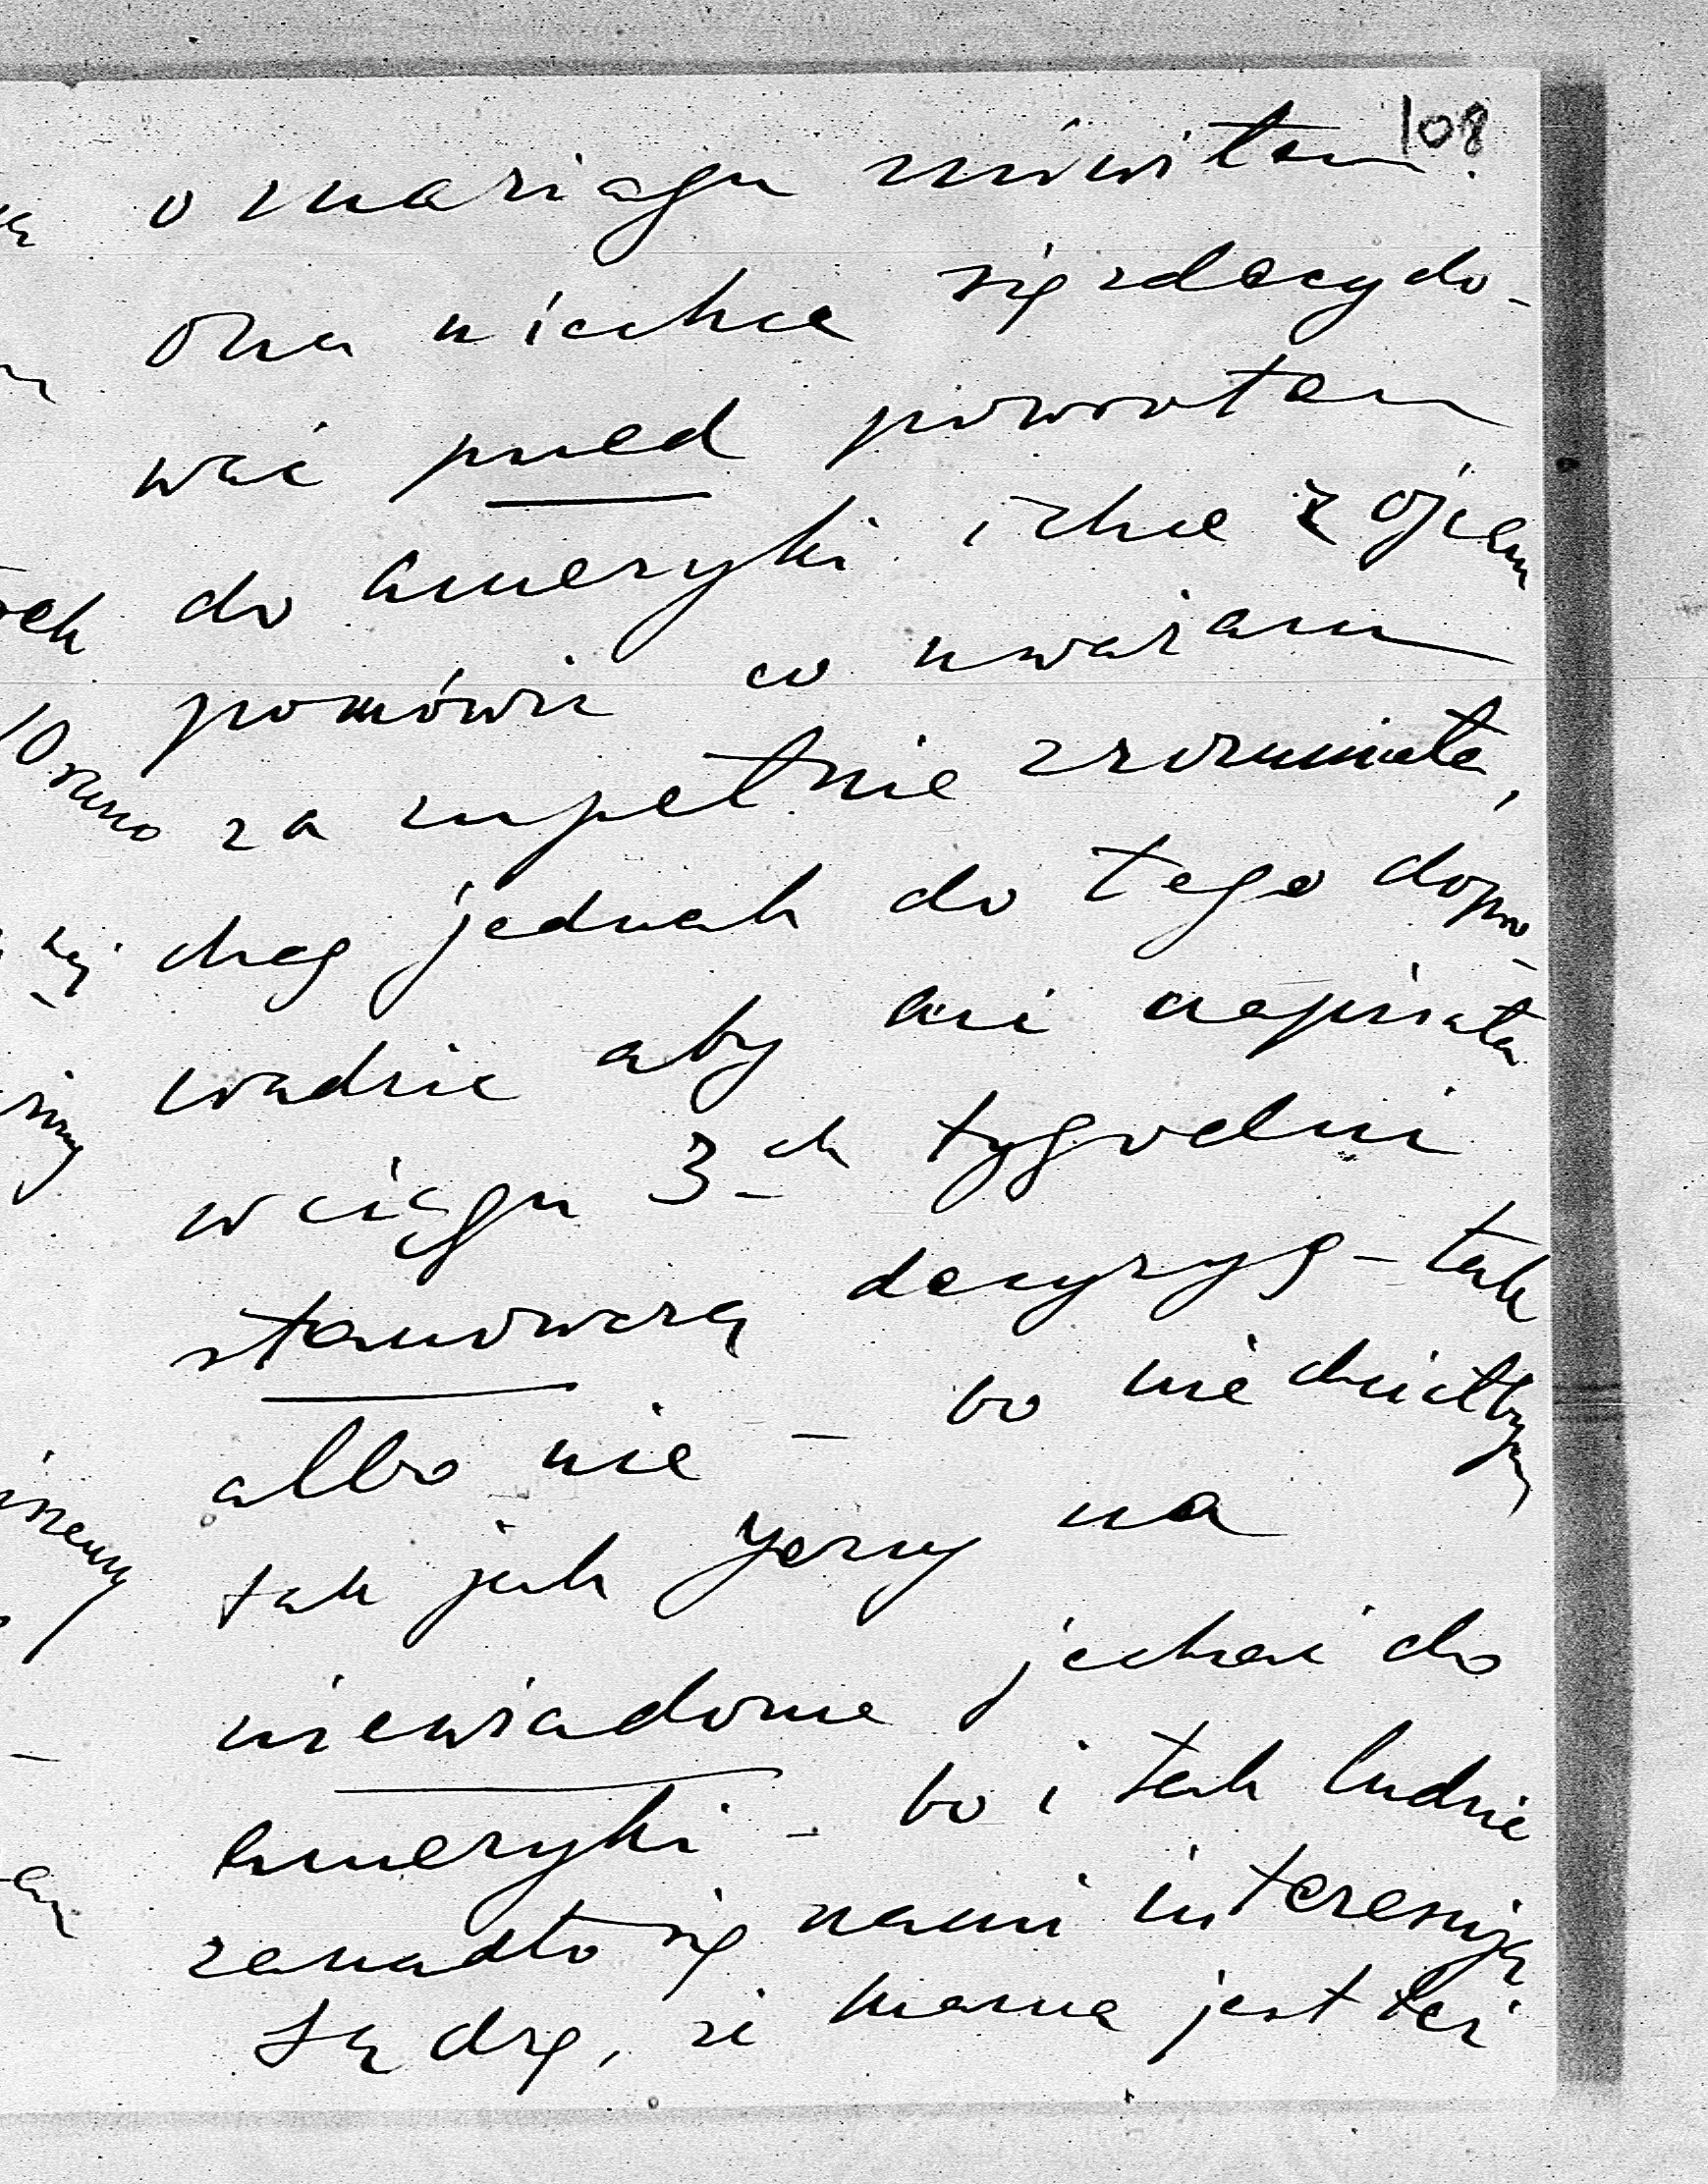 108
o mariagu mówiłam.
Ona niechce się zdecydo-
wać przed powrotem
do Ameryki i chce z ojcem
pomówić co uważam
za zupełnie zrozumiałe,
chcę jednak do tego dopro-
wadzić aby mi napisała
w ciągu 3-ch tygodni
stanowczą decyzyę - tak
albo nie - bo nie chciałbym
tak jak Jerzy na
niewiadome jechać do
Ameryki - bo i tak ludzie
zanadto się nami interesują
Sądzę, że mama jest też